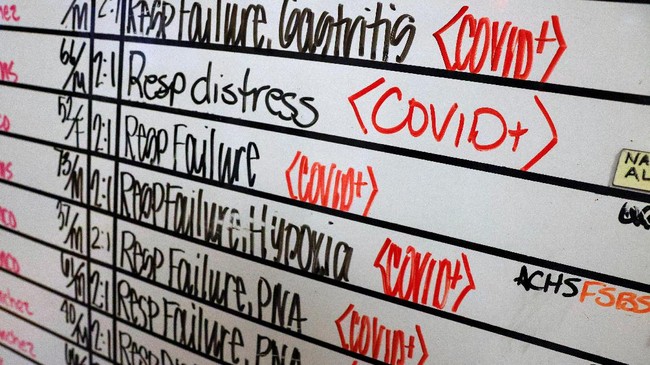 2:1 Resp Failure, Gastritis <COVID+>
66/M 2:1 Resp distress <COVID+>
52/F 2:1 Resp Failure <COVID+>
73/M 2:1 Resp Failure, Hypoxia <COVID+> ACHS FSBS
57/M 2:1 Resp Failure, PNA <COVID+>
2:1 Resp Failure, PNA
40/M Resp